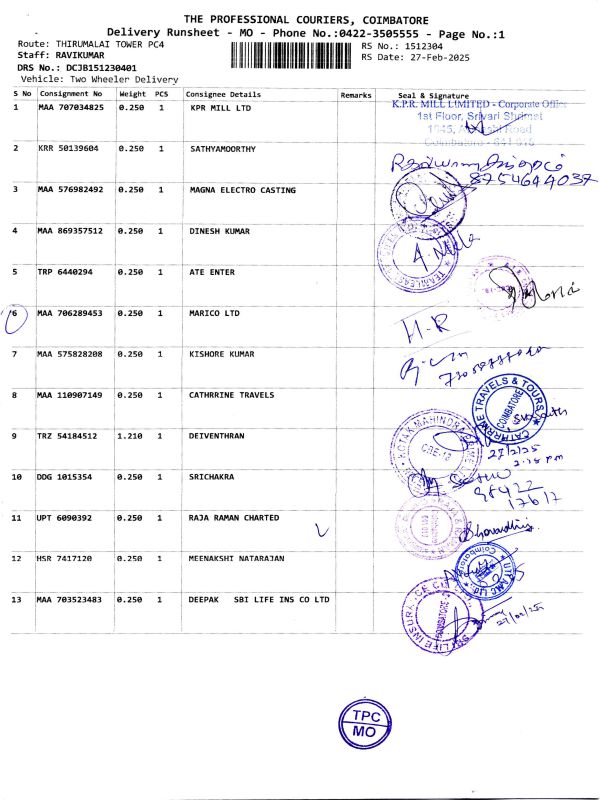 THE PROFESSIONAL COURIERS, COIMBATORE
Delivery Runsheet - MO - Phone No.:0422-3505555 - Page No.:1
Route: THIRUMALAI TOWER PC4
RS No.: 1512304
Staff: RAVIKUMAR
RS Date: 27-Feb-2025
DRS No.: DCJB151230401
Vehicle: Two Wheeler Delivery
S No Consignment No Weight PCS Consignee Details Remarks Seal & Signature
1 MAA 707034825 0.250 1 KPR MILL LTD
K.P.R. MILL LIMITED - Corporate Office
1st Floor, Srivari Shrimat
1045, Road
Coimbatore
2 KRR 50139604 0.250 1 SATHYAMOORTHY
8754644037
3 MAA 576982492 0.250 1 MAGNA ELECTRO CASTING
4 MAA 869357512 0.250 1 DINESH KUMAR
5 TRP 6440294 0.250 1 ATE ENTER
6 MAA 706289453 0.250 1 MARICO LTD
H-R
7 MAA 575828208 0.250 1 KISHORE KUMAR
8 MAA 110907149 0.250 1 CATHRRINE TRAVELS
CATHARRWE TRAVELS & TOURS
COIMBATORE
9 TRZ 54184512 1.210 1 DEIVENTHRAN
KOTAK MAHINDRA
CBE-12
27/2/25
2.15 pm
10 DDG 1015354 0.250 1 SRICHAKRA
98422
17617
11 UPT 6090392 0.250 1 RAJA RAMAN CHARTED
12 HSR 7417120 0.250 1 MEENAKSHI NATARAJAN
UTI AMC Ltd.
Coimbatore
13 MAA 703523483 0.250 1 DEEPAK SBI LIFE INS CO LTD
SBI LIFE INSURANCE CO
COIMBATORE
27/02/25
TPC
MO